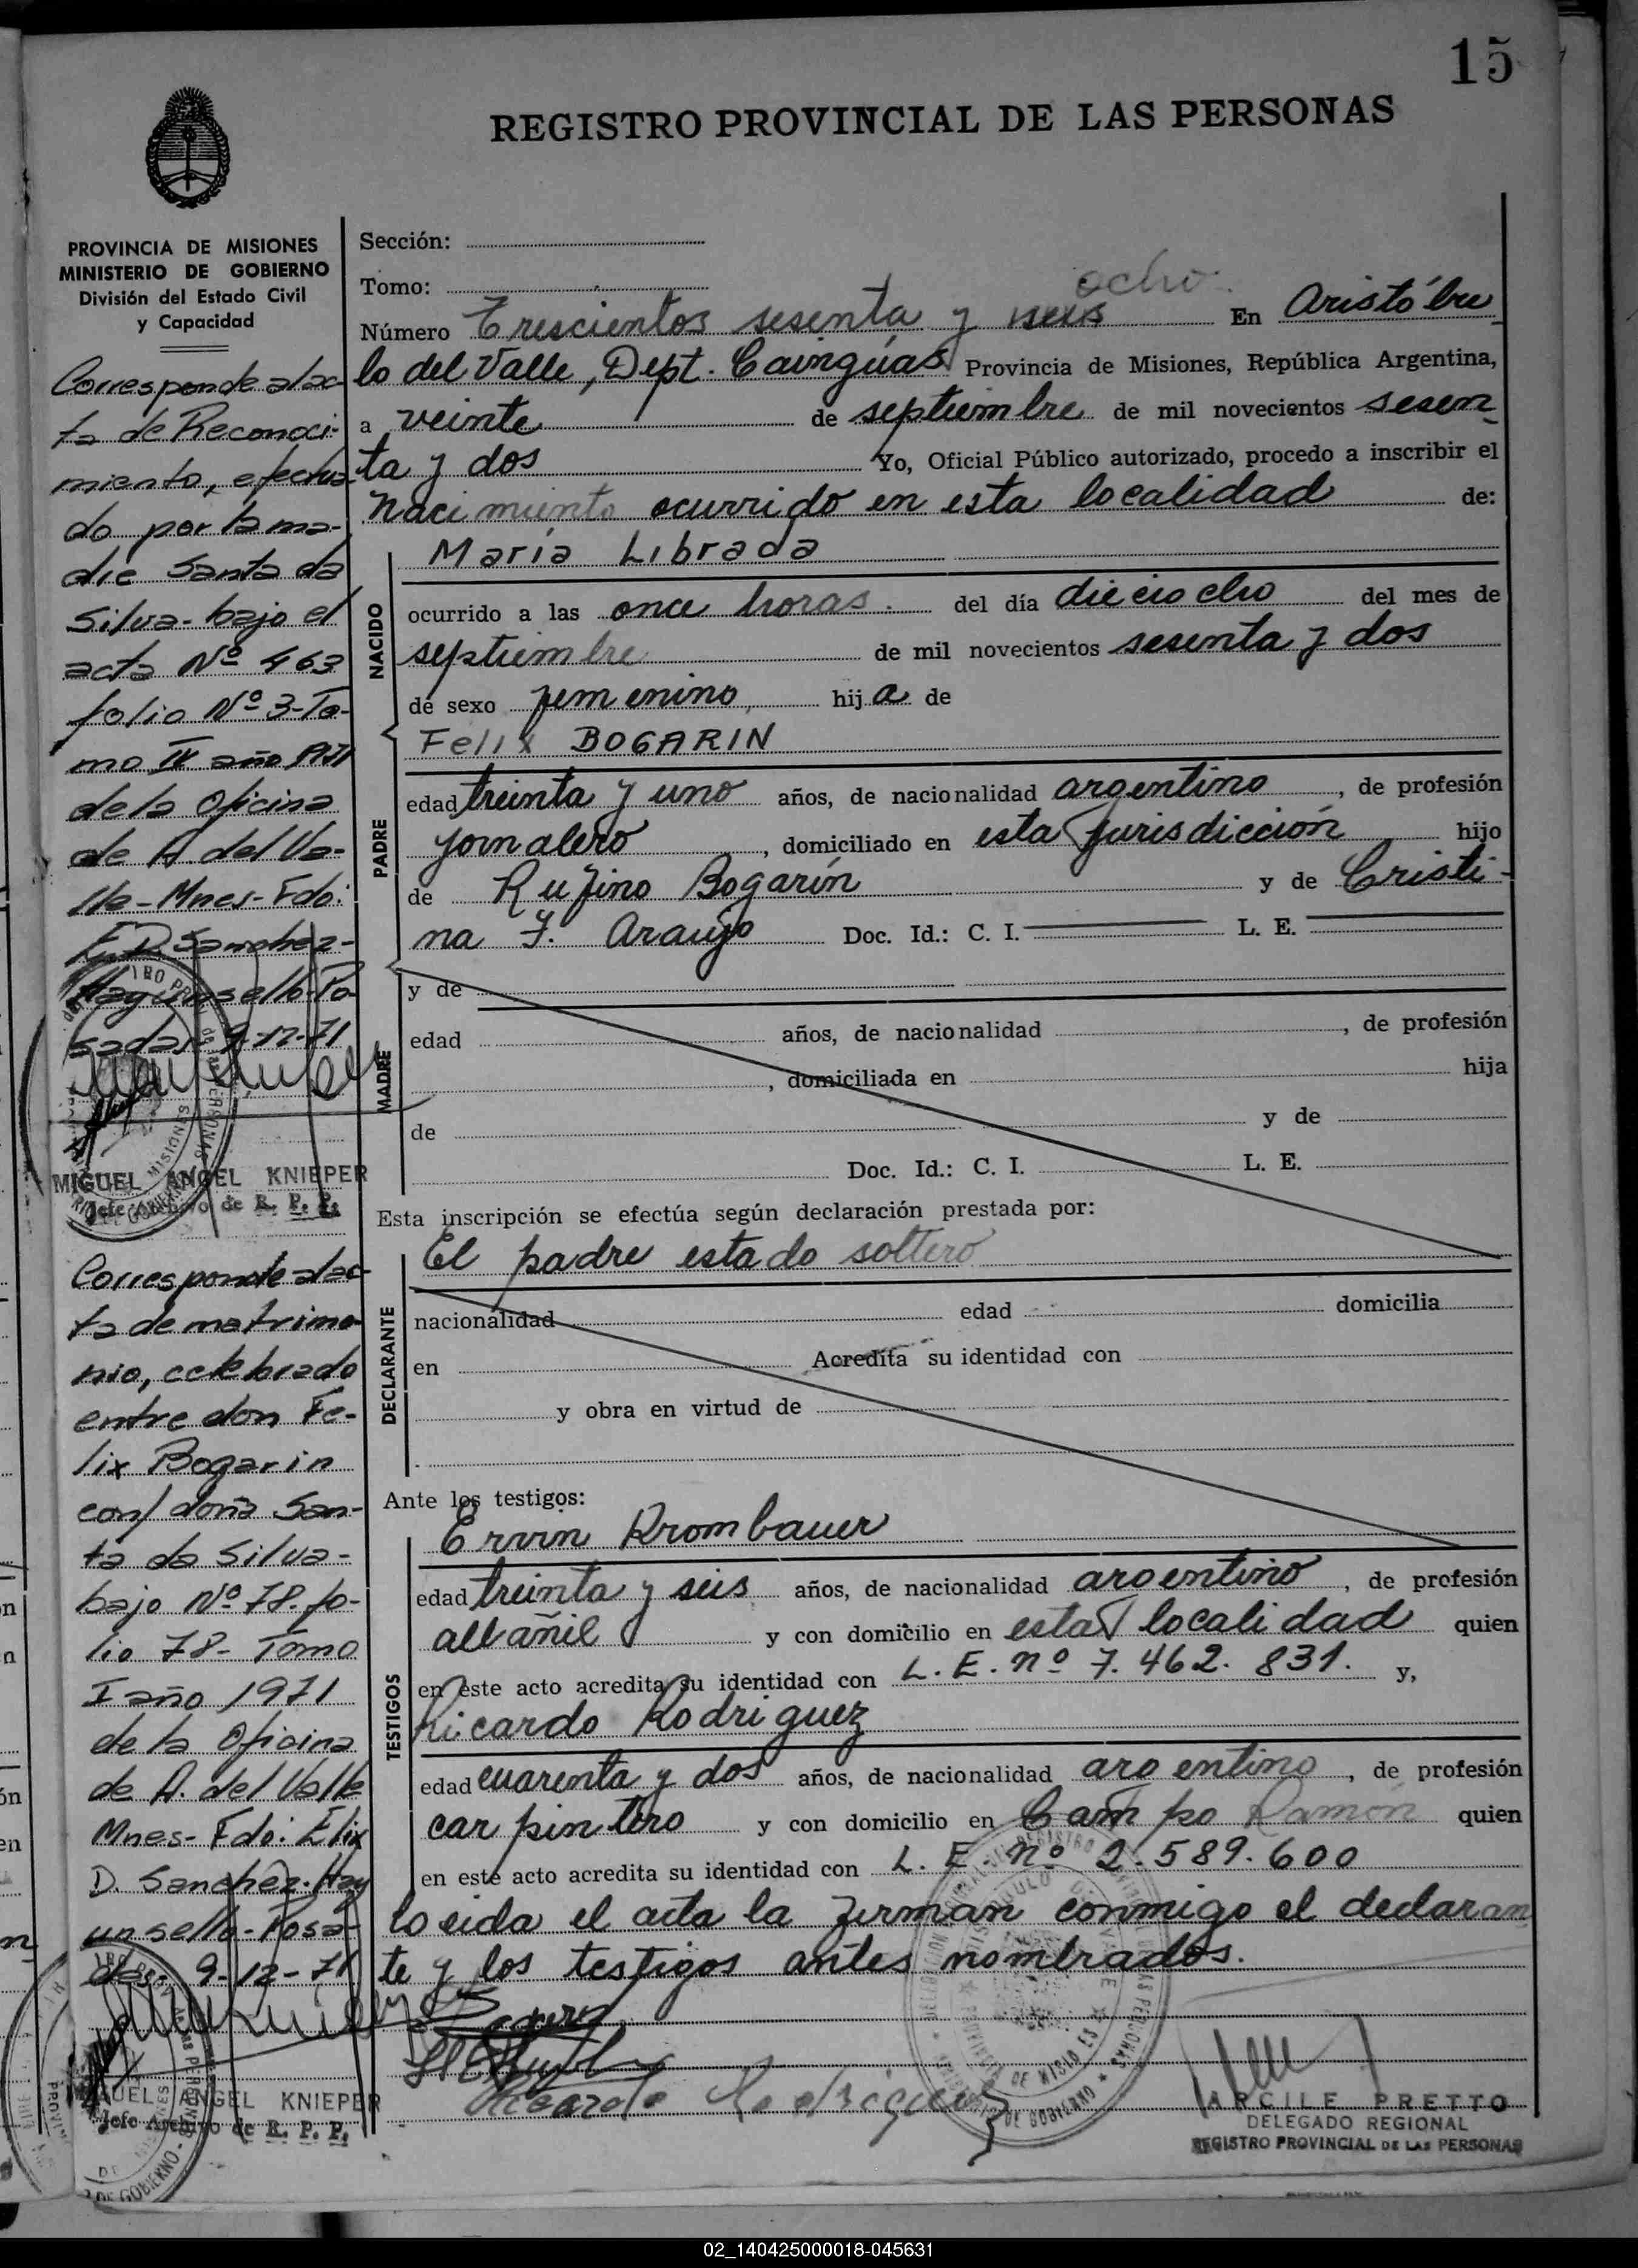 15
REGISTRO PROVINCIAL DE LAS PERSONAS
PROVINCIA DE MISIONES
MINISTERIO DE GOBIERNO
División del Estado Civil
y Capacidad
Corresponde al ac-
ta de Reconoci-
miento, efectua-
do por la ma-
dre Santa da
Silva - bajo el
acta Nº 463
folio Nº 3 - To-
mo IV año 1971
de la Oficina
de A. del Va-
lle - Mnes - Fdo:
E. D. Sanchez -
Hay un sello - Po-
sadas 9-12-71
MIGUEL ANGEL KNIEPER
Jefe Archivo de R. P. P.
Corresponde al ac-
ta de matrimo-
nio, celebrado
entre don Fe-
lix Bogarin
con/ doña San-
ta da Silva -
bajo Nº 78 - fo-
lio 78 - Tomo
I año 1971
de la Oficina
de A. del Valle
Mnes - Fdo: Elix
D. Sanchez - Hay
un sello - Posa-
das - 9-12-71
MIGUEL ANGEL KNIEPER
Jefe Archivo de R. P. P.
Sección:
Tomo:
ocho
Número Trescientos sesenta y seis En Aristóbu
lo del Valle, Dept. Cainguas Provincia de Misiones, República Argentina,
a veinte de septiembre de mil novecientos sesen
ta y dos Yo, Oficial Público autorizado, procedo a inscribir el
nacimiento ocurrido en esta localidad de:
NACIDO
María Librada
ocurrido a las once horas. del día dieciocho del mes de
septiembre de mil novecientos sesenta y dos
de sexo femenino, hija de
PADRE
Felix BOGARIN
edad treinta y uno años, de nacionalidad argentino, de profesión
jornalero, domiciliado en esta jurisdicción hijo
de Rufino Bogarín y de Cristi-
na F. Araujo Doc. Id.: C. I. L. E.
MADRE
y de
edad años, de nacionalidad , de profesión
, domiciliada en hija
de y de
Doc. Id.: C. I. L. E.
Esta inscripción se efectúa según declaración prestada por:
DECLARANTE
El padre estado soltero
nacionalidad edad domicilia
en Acredita su identidad con
y obra en virtud de
Ante los testigos:
TESTIGOS
Ervin Krombauer
edad treinta y seis años, de nacionalidad argentino, de profesión
albañil y con domicilio en esta localidad quien
en este acto acredita su identidad con L. E. nº 7.462.831. y,
Ricardo Rodriguez
edad cuarenta y dos años, de nacionalidad argentino, de profesión
carpintero y con domicilio en Campo Ramón quien
en este acto acredita su identidad con L. E. nº 2.589.600
Leida el acta la firman conmigo el declaran
te y los testigos antes nombrados.
Ricardo Rodriguez
ARCILE PRETTO
DELEGADO REGIONAL
REGISTRO PROVINCIAL DE LAS PERSONAS
02_140425000018-045631